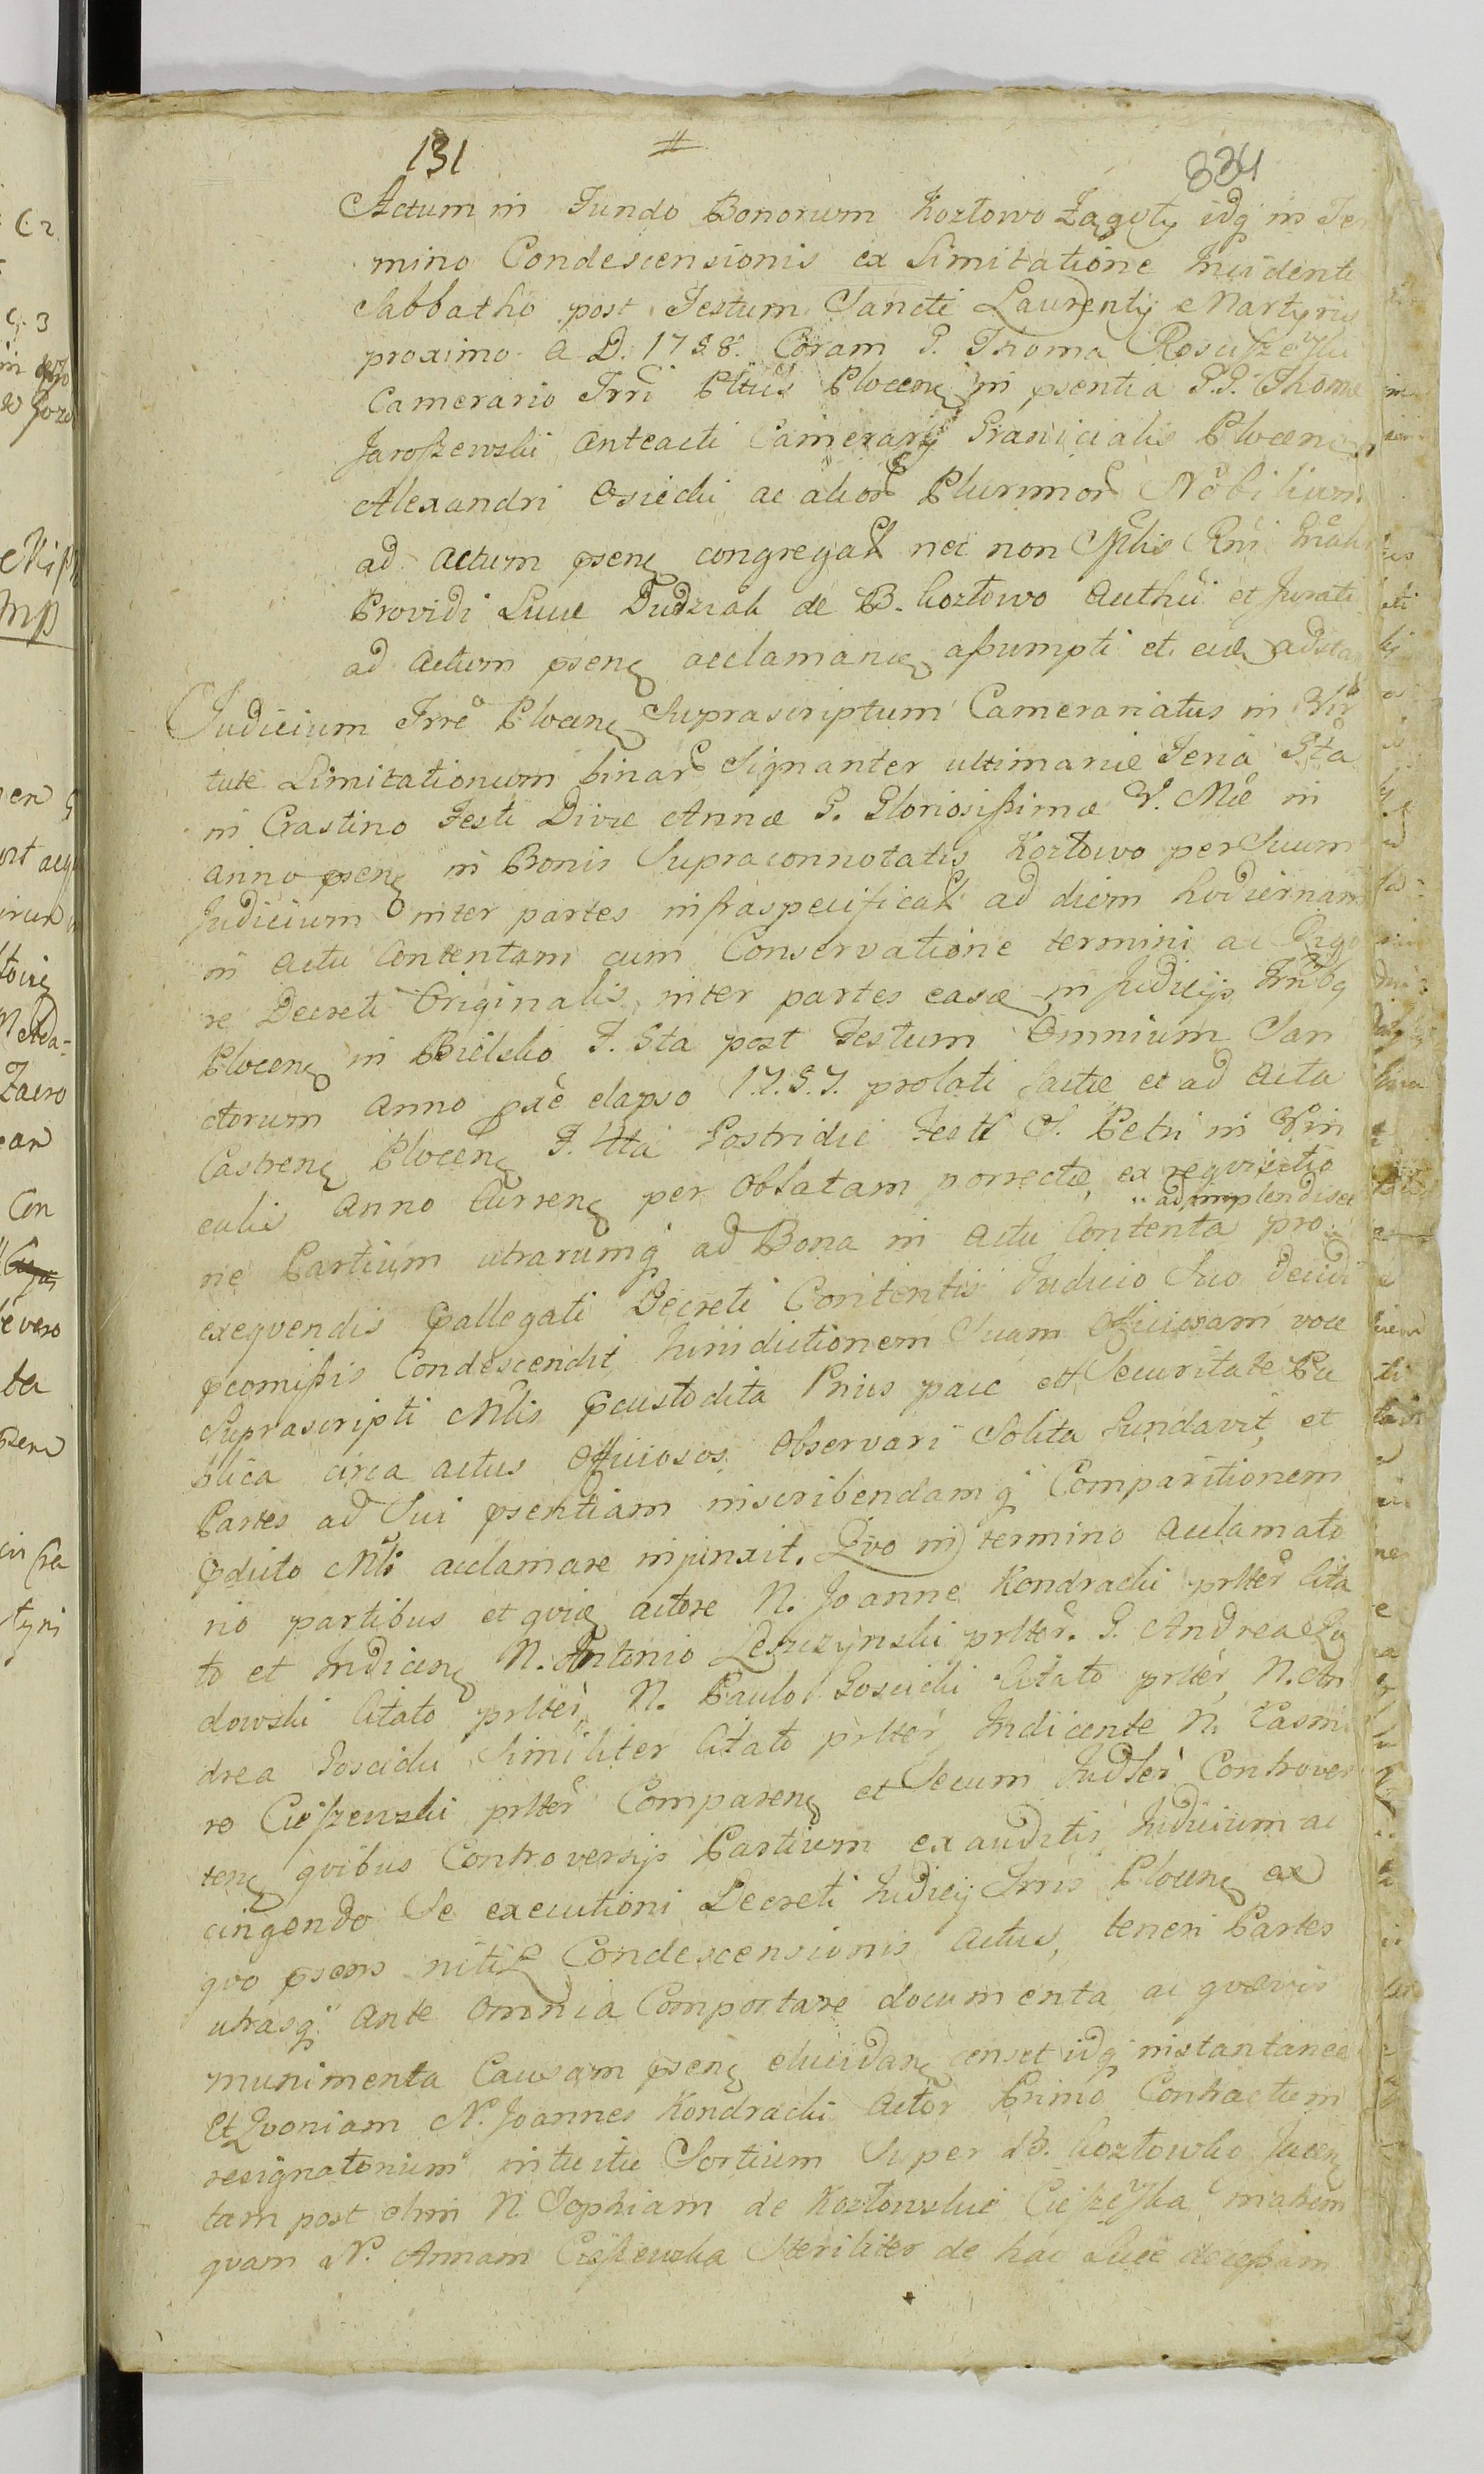 131 # 334
Actum in Fundo Bonorum Kozłowo Zagoty idq in Ter
mino Condescensionis ex Limitatione Incidenti
Sabbatho post Festum Sancti Laurentij Martyris
proximo A D. 1758. Coram G. Thoma
Camerario Trri Pttus Plocen in psentia G.G. Thomæ
Jaroszewski Anteacti Camerarij Granicialis Plocen
Alexandri Osiecki ac alior Plurimor Nobilium
ad actum psen congregat nec non Mtlis Rni
Providi Lucæ Dudziak de B. Kozłowo Authti et Jurati
ad actum psen acclaman assumpti et adstan
Judicium Trre Plocen Suprascriptum Camerariatus in Vir
tute Limitationum binar Signanter ultimariæ Feria 5ta
in Crastino Festi Divæ Annæ G. Gloriosissimæ V. Mæ in
anno psen in Bonis Supraconnotatis Kozłowo per Suum
Judicium inter partes infraspecificat ad diem hodiernam
in actu Contentam cum Conservatione termini ac Rigo
re Decreti Originalis, inter partes easd in Judicijs
Plocen in Bielsko F. 5ta post Festum Omnium San
ctorum Anno pxe elapso 1757. prolati factæ et ad Acta
Castren Plocen F. 4ta Postridie Festi S. Petri in Vin
culis Anno Curren per Oblatam porrectæ, ex requisitio
adimplendisq
ne Partium utrarumq ad Bona in Actu Contenta pro
exequendis pallegati Decreti Contentis Judicio Suo decidi
pcomissis Condescendit, Jurisdictionem Suam Officiosam voce
Suprascripti Mtlis pcustodita Prius pace et Securitate Pu
blica circa actus Officiosos Observari Solita fundavit, et
Partes ad Sui psentiam inscribendamq Comparitionem
pdicto Mtli acclamare injunxit. Quo in termino acclamato
rio partibus et actore N. Joanne Kondracki prtter Cita
to et Indicen N. Antonio Leszczynski prtter. G. Andrea Lu
dowski Citato prtter, N. Paulo Goscicki Citato prtter, N. An
drea Goscicki Similiter Citato prtter Indicente N. Casimi
ro Cieszewski prtter Comparen et Secum Judter Controver
ten quibus Controversijs Partium exauditis, Judicium ac
cingendo Se executioni Decreti Judicij Trris Plocen ex
quo psens nitit Condescensionis Actus, teneri Partes
utrasq ante Omnia Comportare documenta ac quævis
munimenta Causam psen elucidan censet idq instantanee
Et Quoniam N. Joannes Kondracki Actor Primo Contractum
resignatorium intuitu Sortium Super B. Kozłowko Jacen
tam post olim N. Sophiam de Kozłowskie Cieszewska matrem
quam N. Annam Cieszewska Steriliter de hac Luce decessam